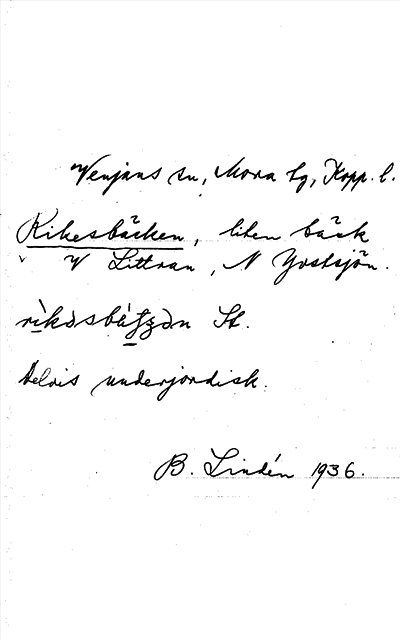 Venjans sn, Mora tg, Kopp. l.
Rikesbäcken, liten bäck
V Littran, N Yvstsjön.
St.
Delvis underjordisk.
B. Lindén 1936.